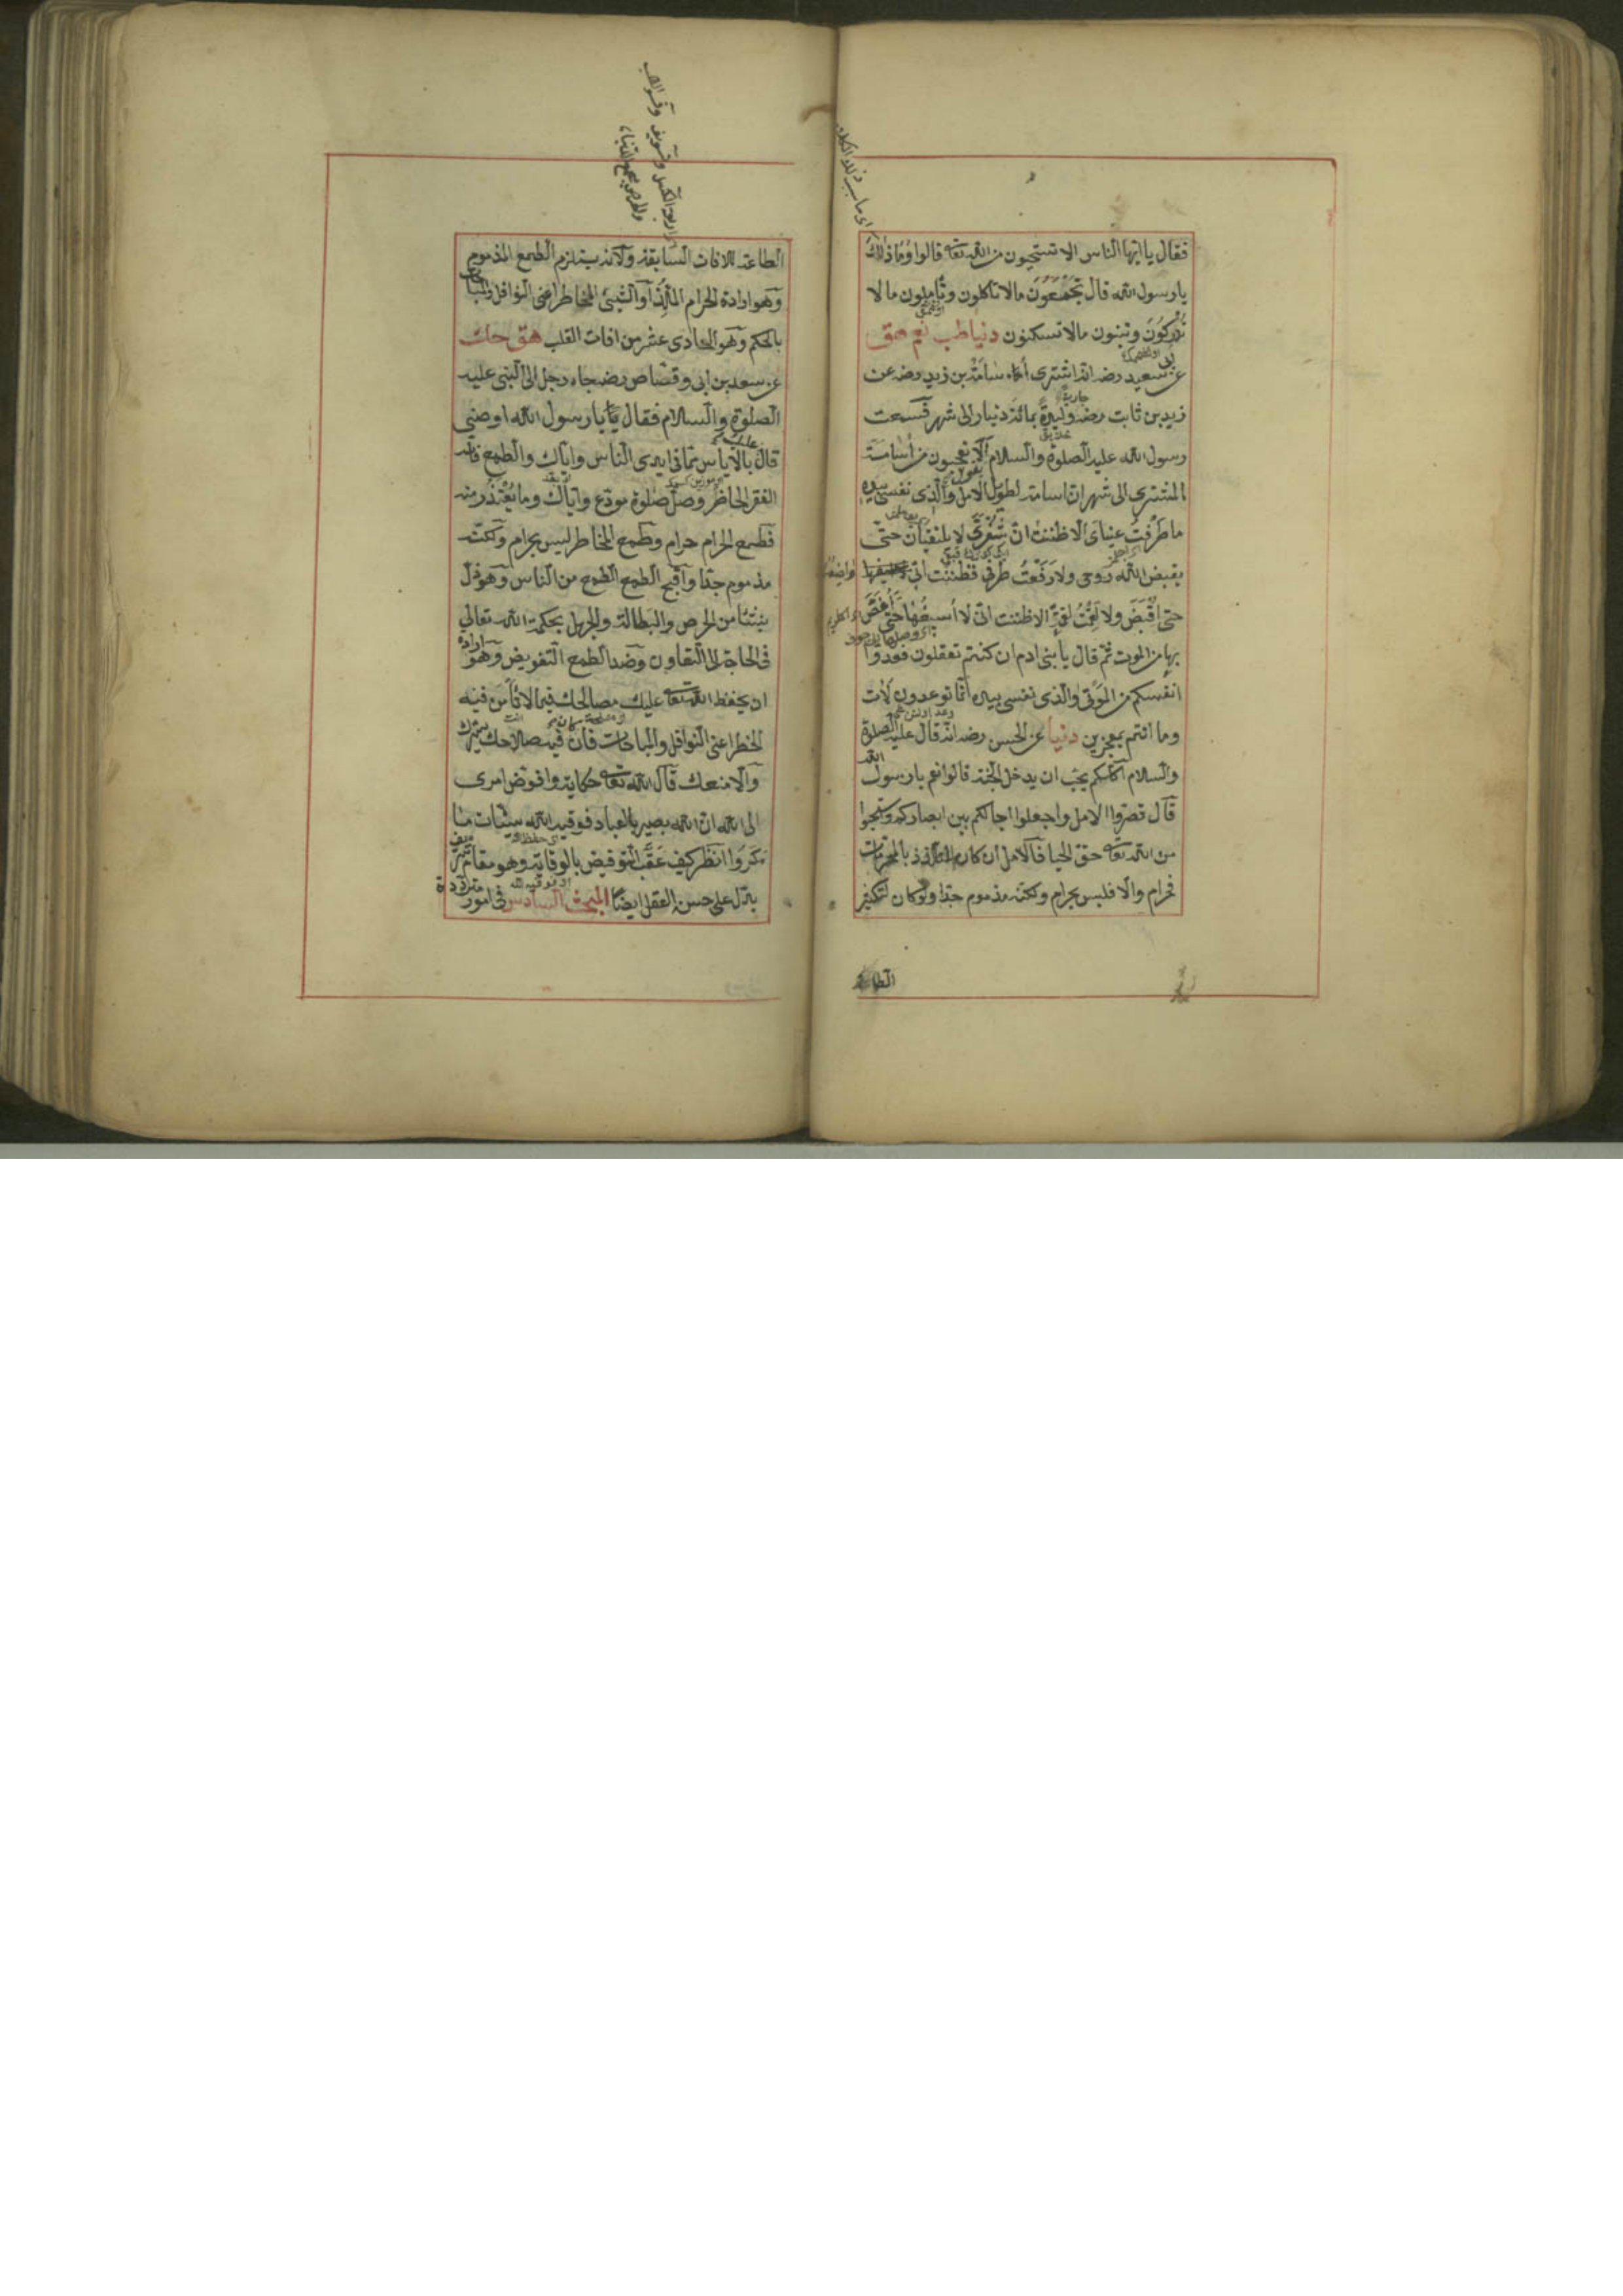 فقال يا ايها الناس الا تستحيون من الله تعا قالوا وما ذلك
يا رسول الله قال تجمعون مالا تاكلون وتاملون مالا
تدركون وتبنون مالا تسكنون دنيا طب نعم هق
عن ابى سعيد رضه انه اشترى اسامة بن زيد رضه عن
زيد بن ثابت رضه وليدة بمائة دنيار الى شهر فسمعت
رسول الله عليه الصلوة والسلام الا تعجبون من اسامة
المشترى الى شهر ان اسامة لطويل الامل والذى نفسى بيده
ما طرفت عيناى الا ظننت ان شفرى لا يلتقيان حتى
يقبض الله روحى ولا رفعت طرفى فظننت انى واضعه
حتى اقبض ولا لقمت لقمة الا ظننت انى لا اسيغها حتى اغص
بها من الموت ثم قال يا بنى ادم ان كنتم تعقلون فعدوا
انفسكم من الموتى والذى نفسى بيده انما توعدون لات
وما انتم بمعجزين دنيا عن الحسن رضه انه قال عليه الصلوة
والسلام اكلكم يحب ان يدخل الجنة قالوا نعم يا رسول الله
قال قصروا الامل واجعلوا اجالكم بين ابصاركم واستحيوا
من الله تعا حق الحيا فالامل ان كان للتلذذ بالمحرمات
فحرام والا فليس بحرام ولكنه مذموم جدا ولو كان لتكثير
الطاعة
الطاعة للافات السابقة ولانه يستلزم الطمع المذموم
وهو ارادة الحرام الملذ او الشيئ المخاطر اعنى النوافل والمباحات
بالحكم وهو الحادى عشر من افات القلب هق حك
عن سعد بن ابى وقاص رضه جاء رجل الى النبى عليه
الصلوة والسلام فقال يا رسول الله اوصنى
قال عليك بالاياس مما فى ايدى الناس واياك والطمع فانه
الفقر الحاضر وصل صلوة مودع واياك وما يعتذر منه
فطمع الحرام حرام وطمع المخاطر ليس بحرام ولكنه
مذموم جدا واقبح الطمع الطمع من الناس وهو ذل
ينشأ من الحرص والبطالة والجهل بحكمة الله تعالى
فى الحاجة الى التعاون وضد الطمع التفويض وهو ارادة
ان يحفظ الله تعا عليك مصالحك فيما لا تأمن فيه
الخطر اعنى النوافل والمباحات فان كان فيه صلاحك يسرك
والا منعك قال الله تعا حكاية وافوض امرى
الى الله ان الله بصير بالعباد فوقيه الله سيئات ما
مكروا انظر كيف عقب التفويض بالوقاية وهو مقام شريف
يدل على حسنه العقل ايضا المبحث السادس فى امور مترددة